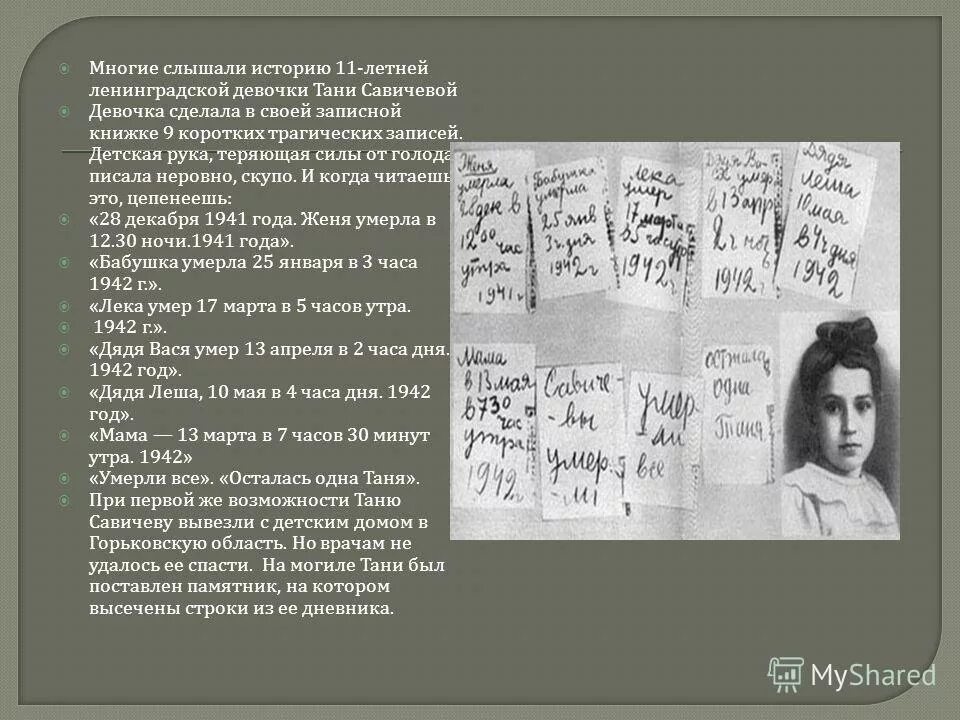 Многие слышали историю 11-летней
ленинградской девочки Тани Савичевой
Девочка сделала в своей записной
книжке 9 коротких трагических записей.
Детская рука, теряющая силы от голода
писала неровно, скупо. И когда читаешь
это, цепенеешь:
«28 декабря 1941 года. Женя умерла в
12.30 ночи.1941 года».
«Бабушка умерла 25 января в 3 часа
1942 г.».
«Лека умер 17 марта в 5 часов утра.
1942 г.».
«Дядя Вася умер 13 апреля в 2 часа дня.
1942 год».
«Дядя Леша, 10 мая в 4 часа дня. 1942
год».
«Мама — 13 марта в 7 часов 30 минут
утра. 1942»
«Умерли все». «Осталась одна Таня».
При первой же возможности Таню
Савичеву вывезли с детским домом в
Горьковскую область. Но врачам не
удалось ее спасти. На могиле Тани был
поставлен памятник, на котором
высечены строки из ее дневника.
Женя
умерла
в
12
час
утра
1941 г
Бабушка
умерла
25 янв
1942 г
Лека
умер
17 марта
в 5 час
1942 г
в 13 апр
2 ч ноч
1942 г
Дядя
Леша
10 мая
в 4 ч дня
1942
Мама
в 13 мая
в 7 30
час
утра
1942 г
Савиче-
-вы
умер.
-ли
умер
-ли
все
осталась
одна
Таня
MyShared